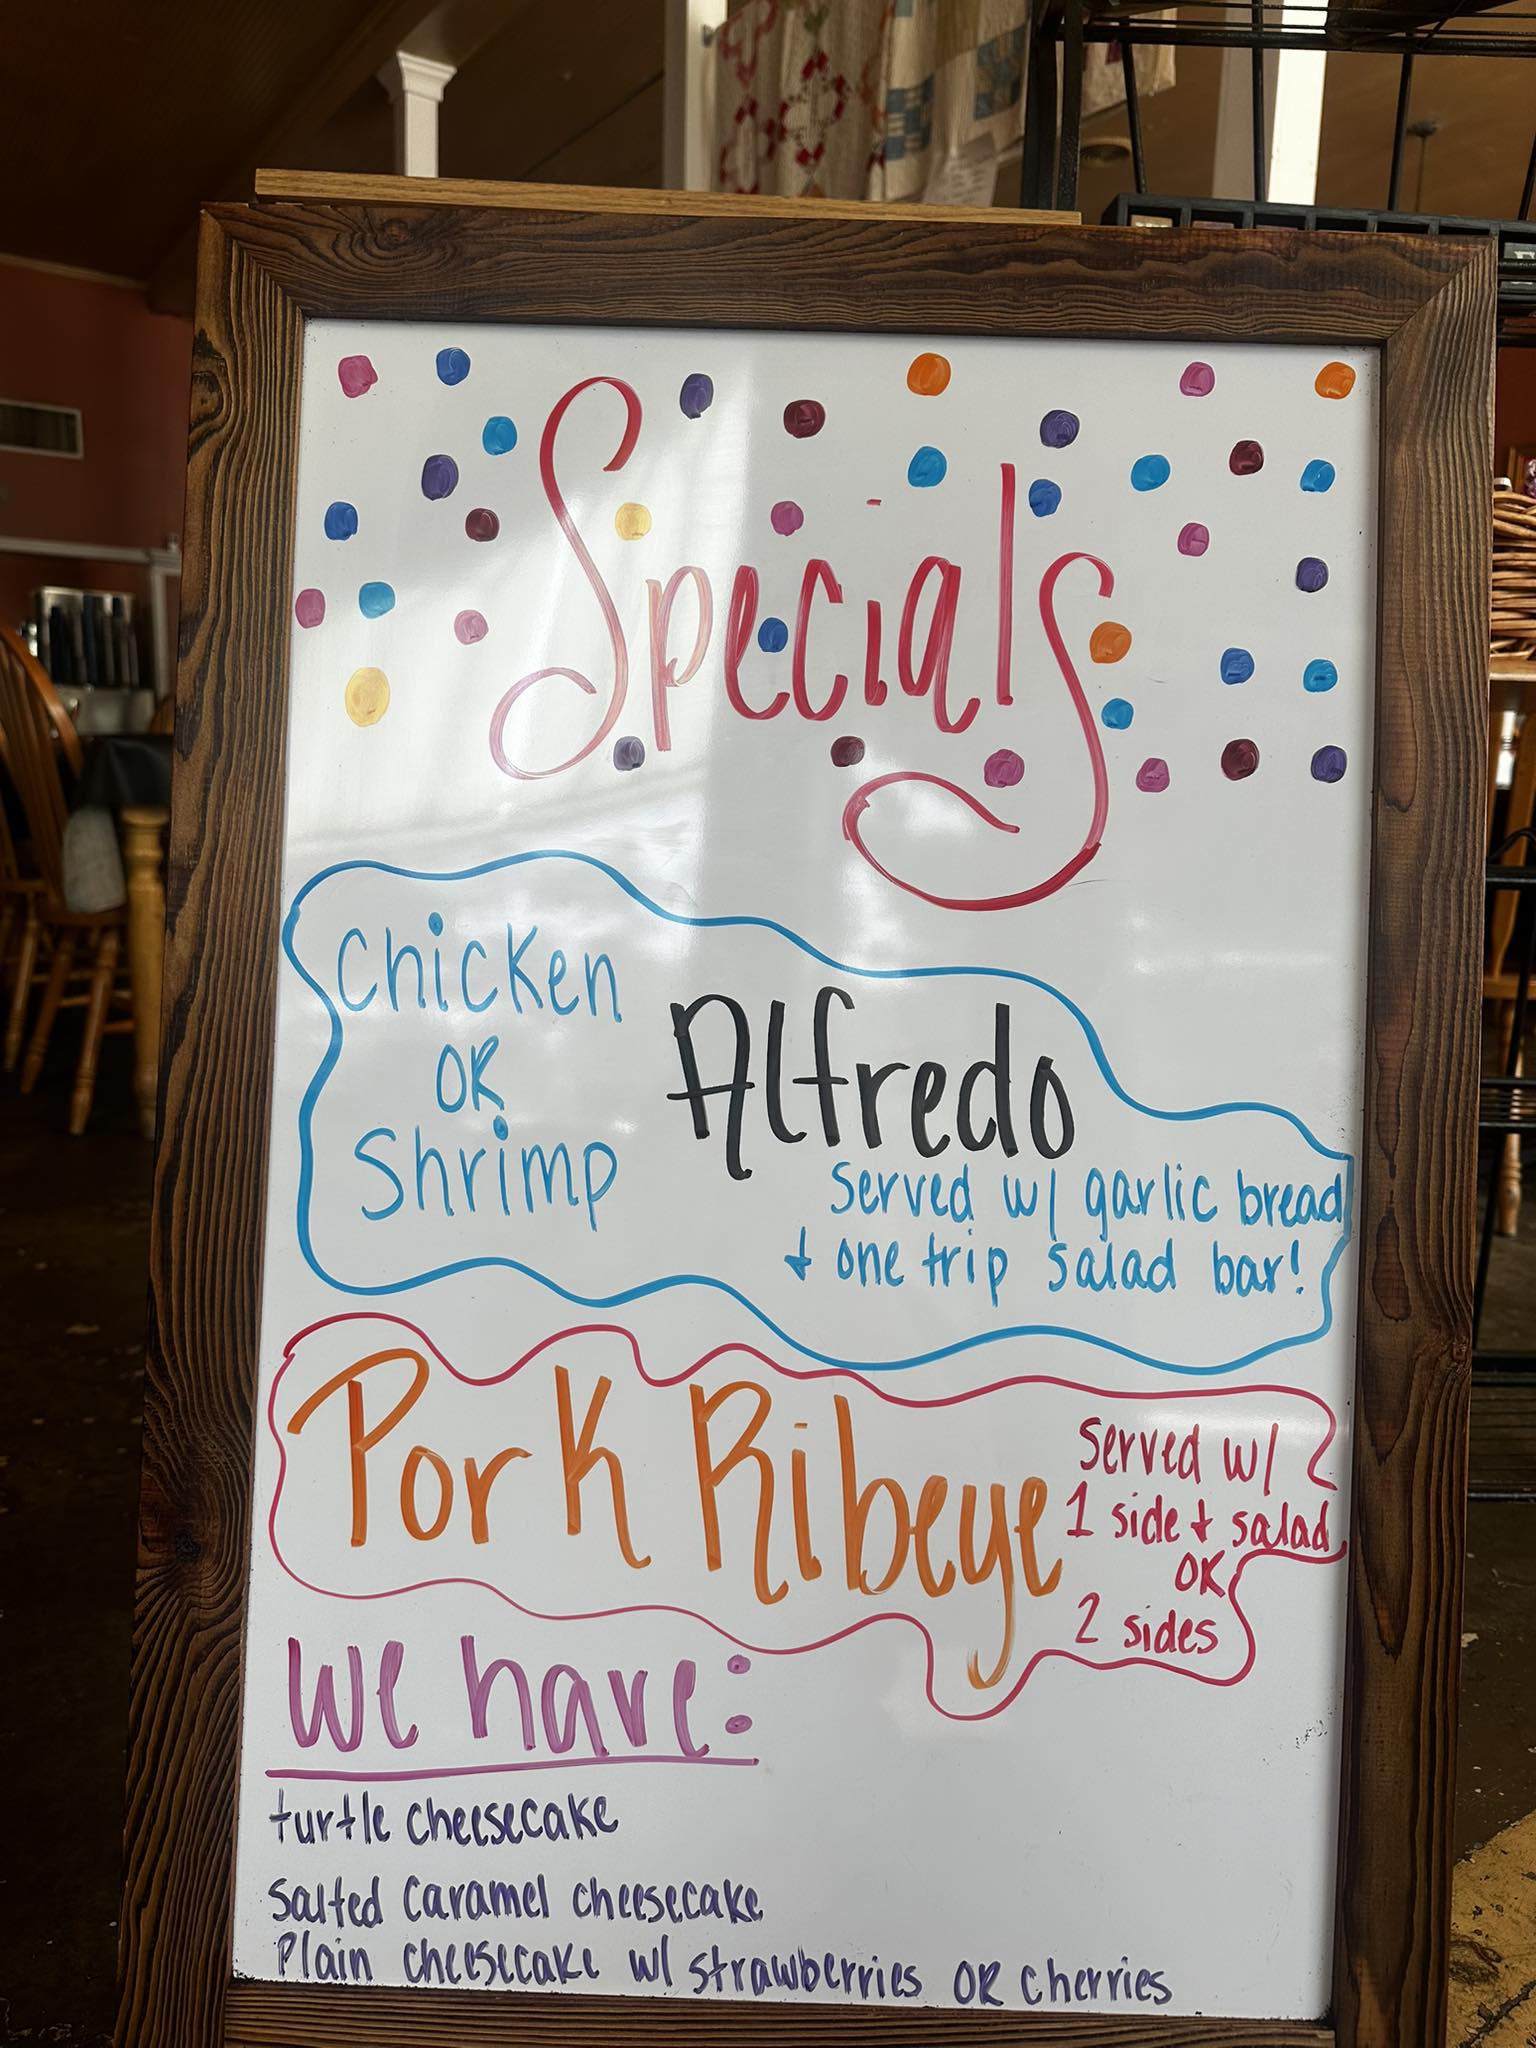 Specials
Chicken
OR
Shrimp
Alfredo
Served w/ garlic bread
+ one trip salad bar!
Pork Ribeye
Served w/
1 side + salad
OR
2 sides
We have:
turtle cheesecake
Salted Caramel cheesecake
Plain cheesecake w/ strawberries OR cherries